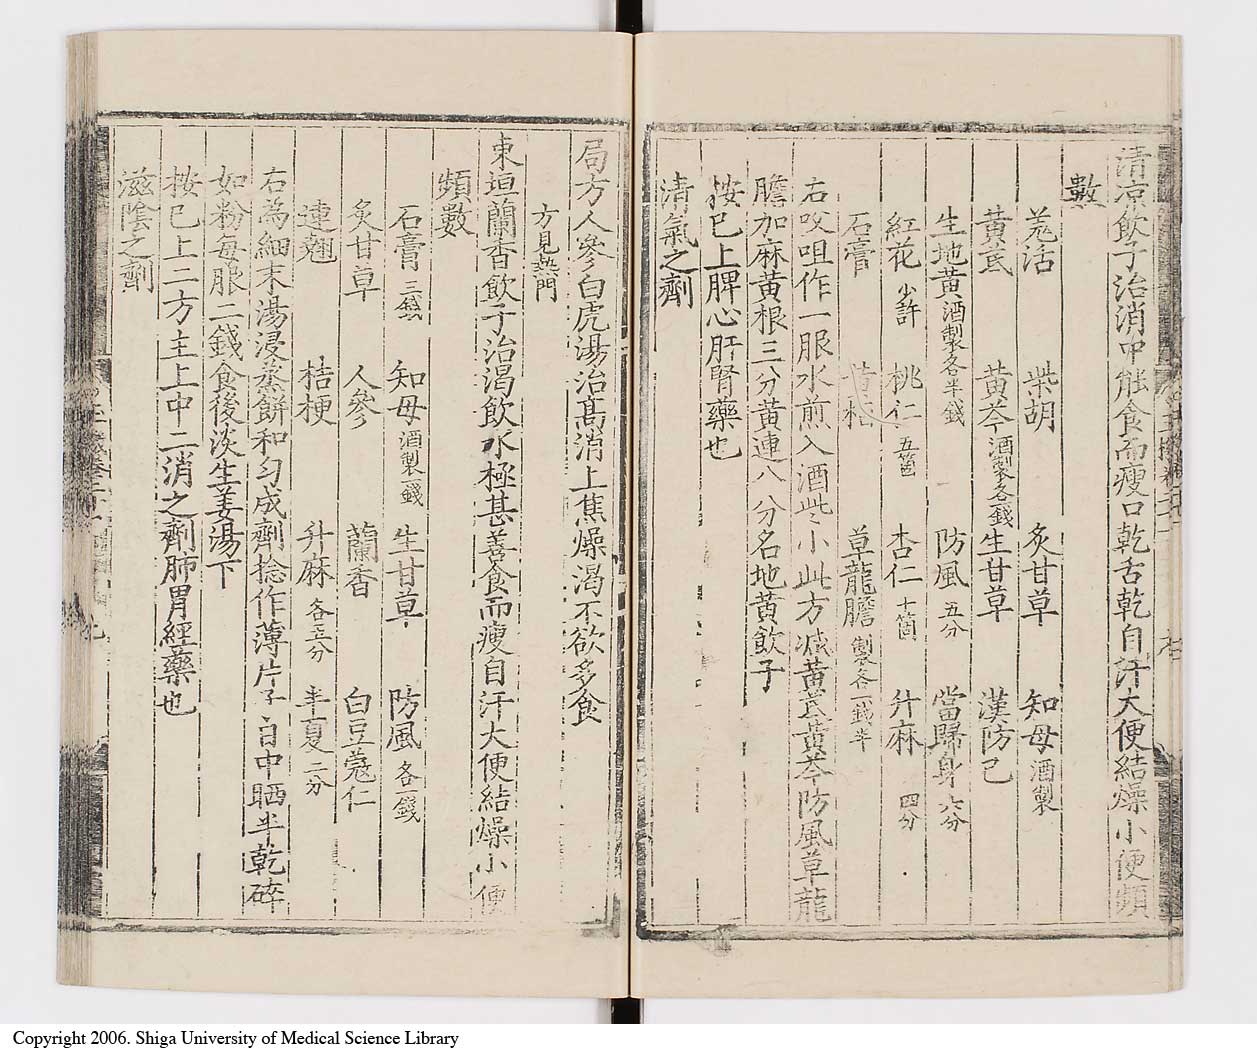 清凉飲子治消中能食而瘦口乾舌乾自汗大便結燥小便頻
數
羗活 柴胡 炙甘草 知母酒製
黄芪 黄芩酒製各一錢 生甘草 漢防已
生地黄酒製各半錢 防風五分 當歸身六分
紅花少許 桃仁五箇 杏仁十箇 升麻四分
石膏 黄栢 草龍膽製各一錢半
右㕮咀作一服水煎入酒些小此方减黄芪黄芩防風草龍
膽加麻黄根三分黄連八分名地黄飲子
按已上脾心肝腎藥也
清氣之劑
局方人參白虎湯治髙消上焦燥渴不欲多食
方見熱門
東垣蘭香飲子治渴飲水極甚善食而瘦自汗大便結燥小便
頻數
石膏三錢 知母酒製一錢 生甘草 防風各一錢
炙甘草 人參 蘭香 白豆蔻仁
連翹 桔梗 升麻各五分 半夏二分
右為細末湯浸蒸餅和匀成劑捻作薄片子日中晒半乾碎
如粉每服二錢食後淡生姜湯下
按已上二方主上中二消之劑肺胃經藥也
滋陰之劑
Copyright 2006. Shiga University of Medical Science Library